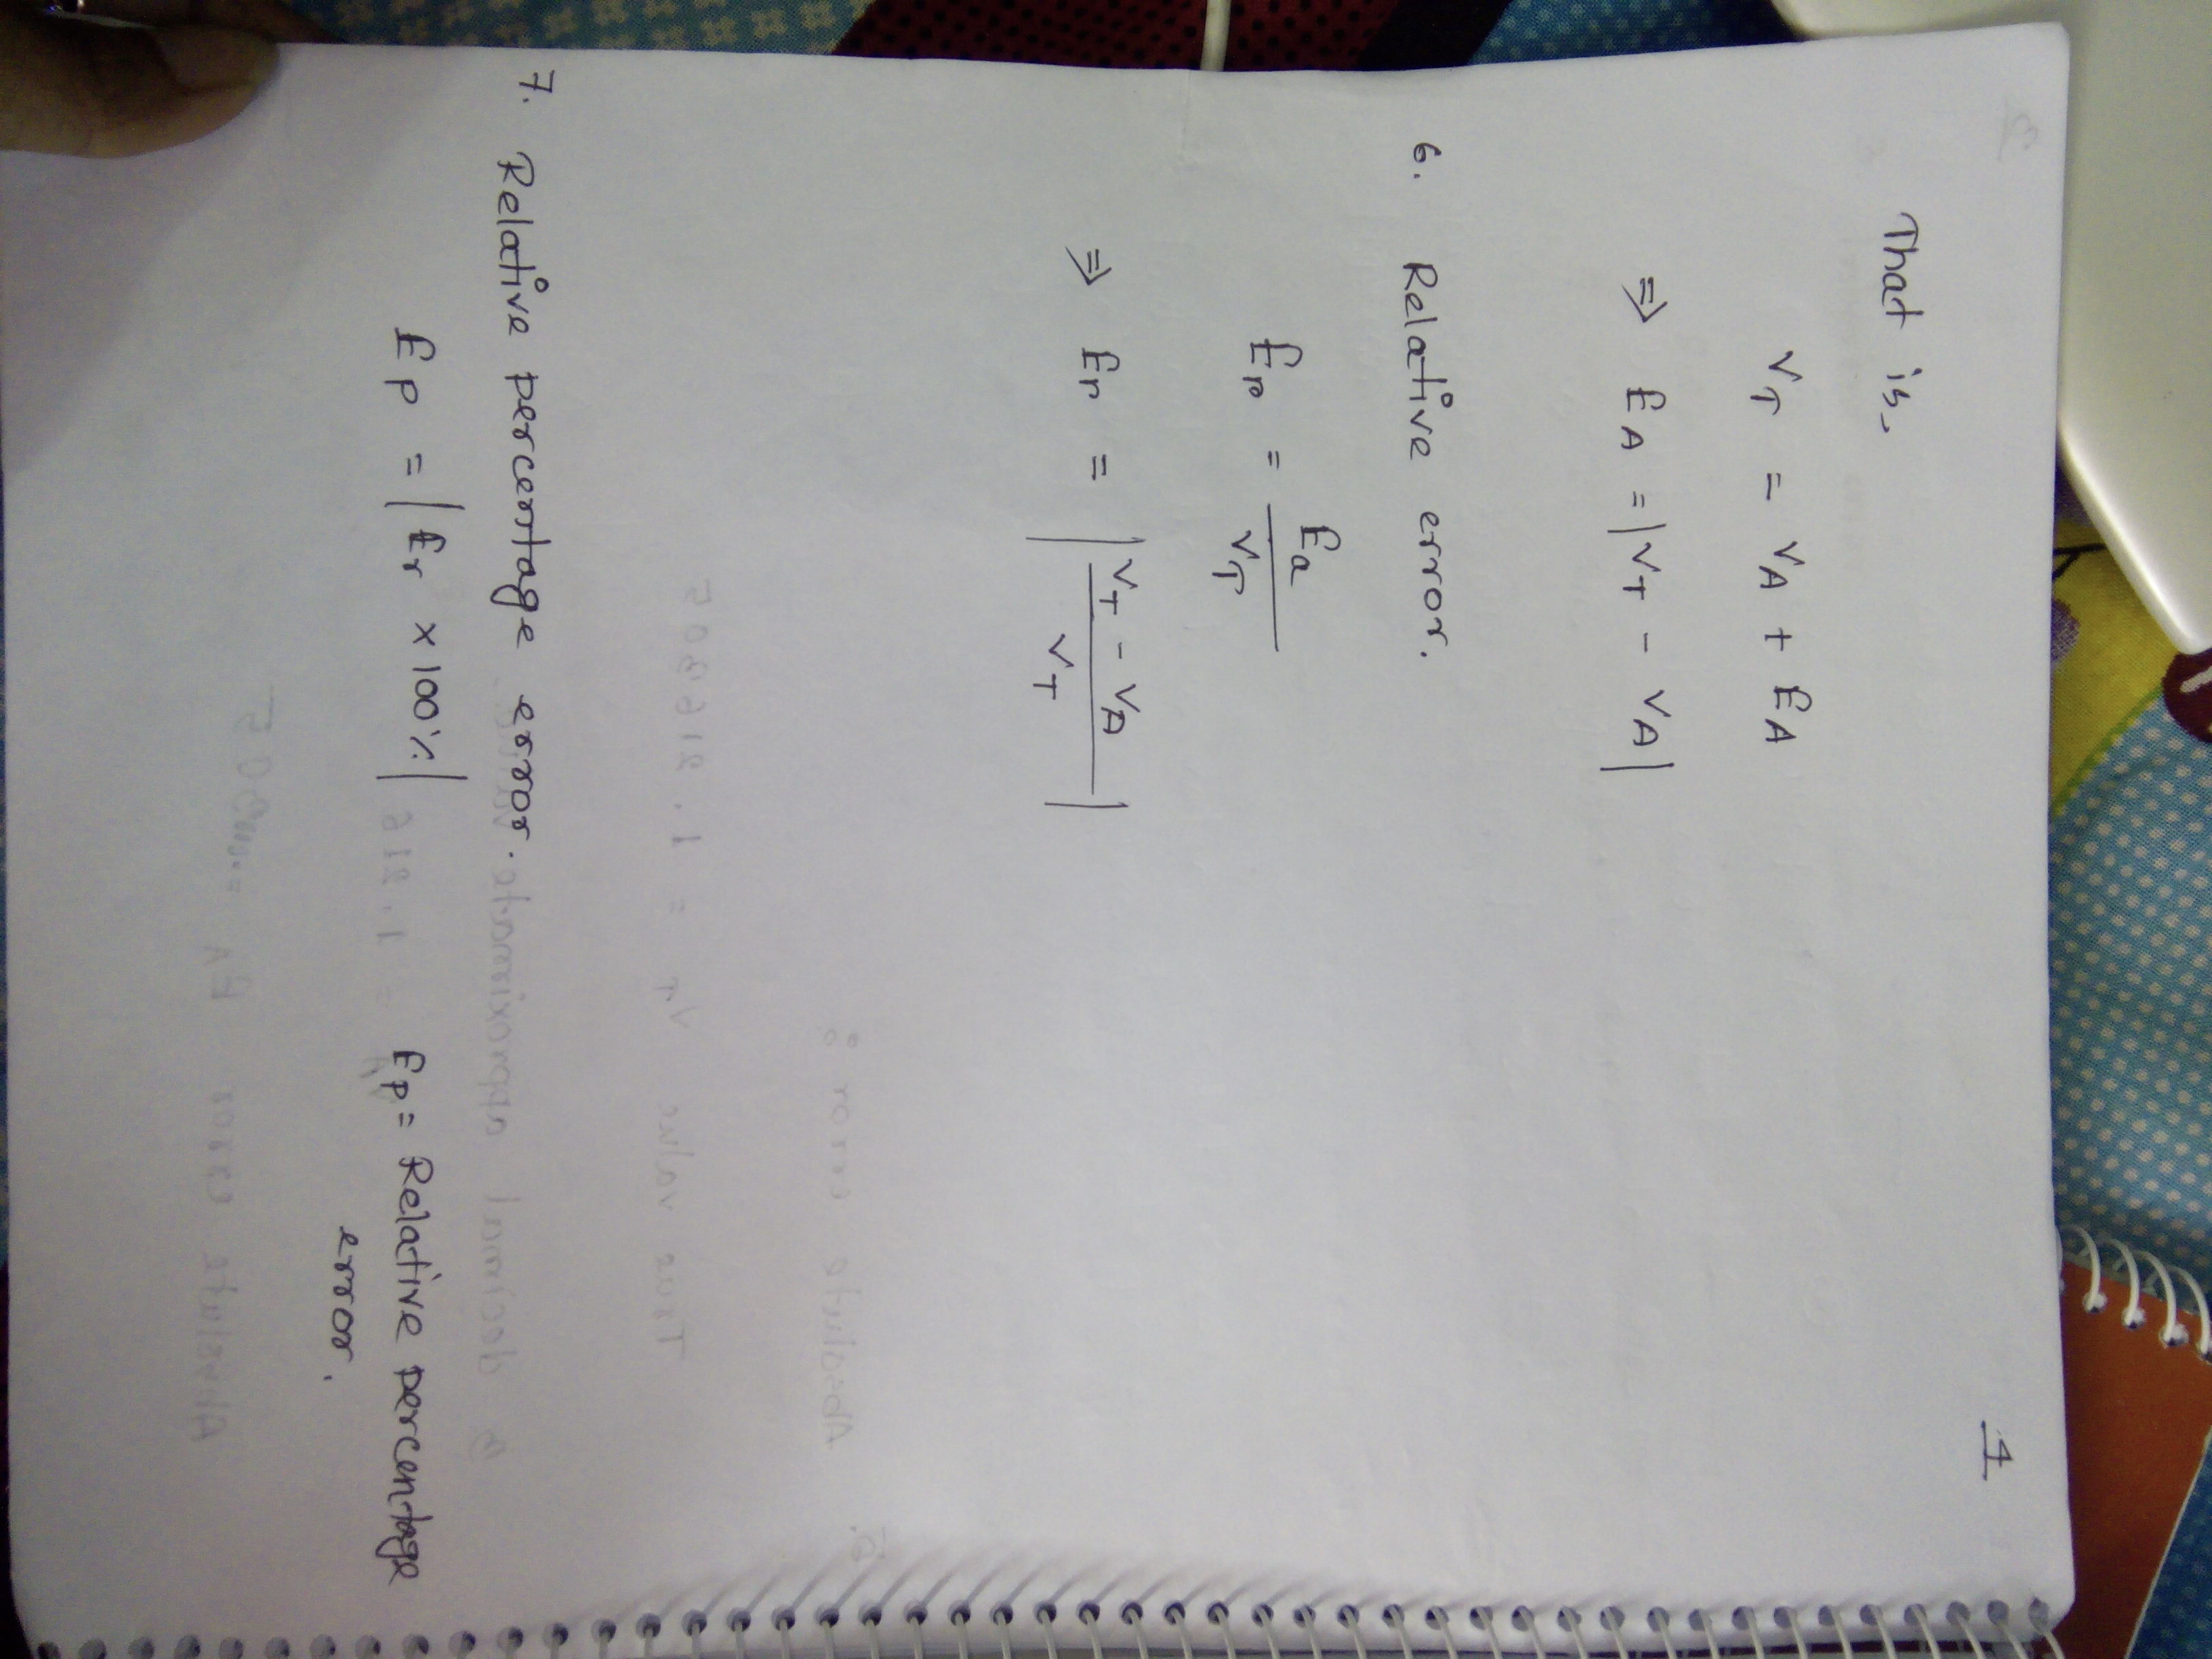 4
That is,
V_T = V_A + E_A
⇒ E_A = |V_T - V_A|
6. Relative error.
E_r = E_a / V_T
⇒ E_r = |(V_T - V_A) / V_T|
7. Relative percentage error.
E_p = |E_r × 100%| E_p = Relative percentage
error.